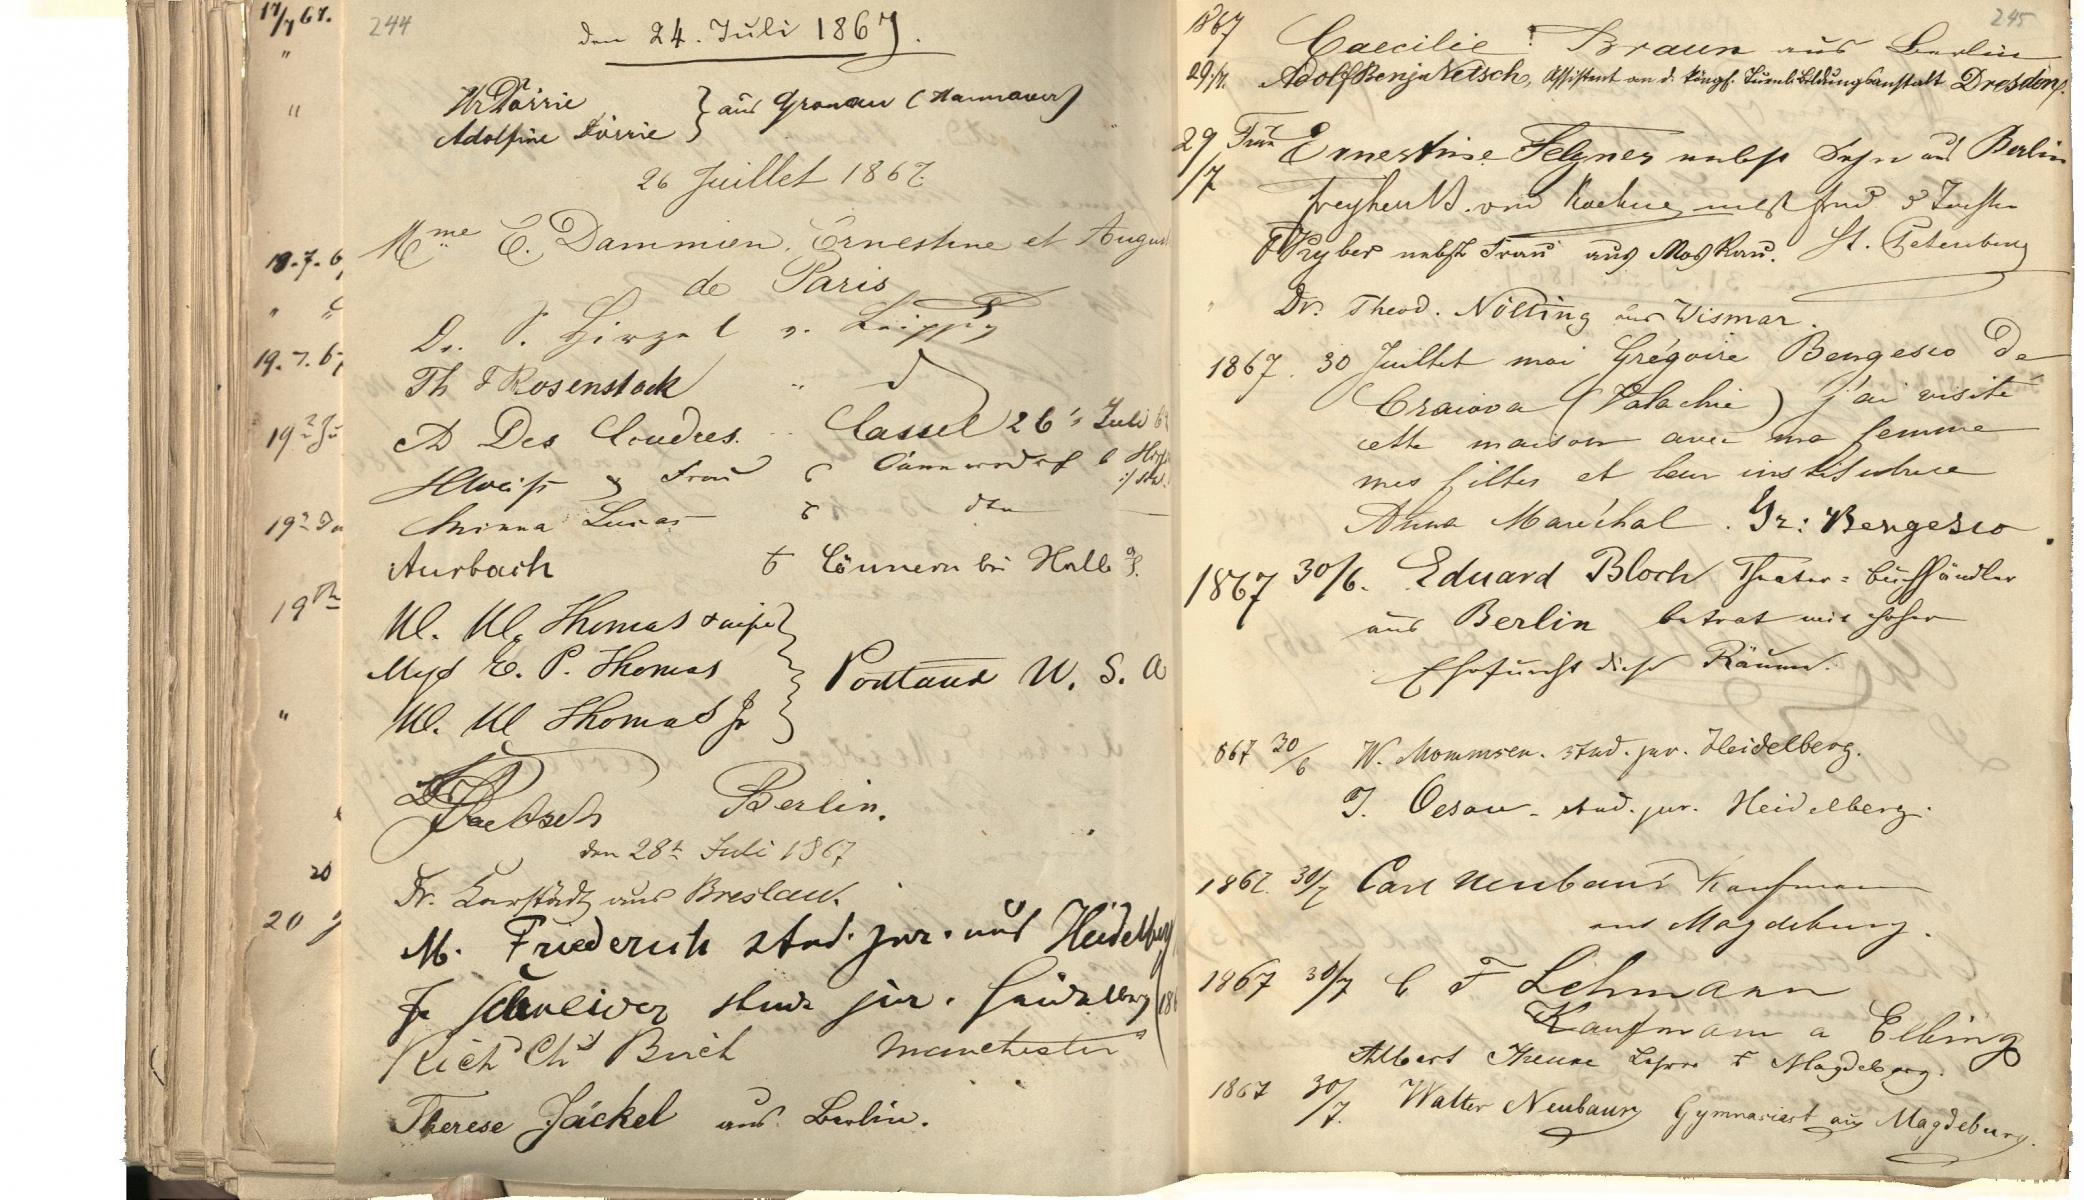 17/7 67.
"
"
18.7.6
" "
19.7.67
19
19
19
"
20
20
244
den 24. Juli 1867.
Dörrie
Adolfine Dörrie } aus Gronau (Hannover)
26 Juillet 1867.
Mme E. Dammien. Ernestine et August
de Paris
Dr. S. Hirzel v. Leipzig
Th F Rosenstock "
A Des Coudres. Cassel 26 Juli 6
HWeiß & Frau
Minna Lucas dto
Aurbach Cönnern bei Halle a/S.
W. W. Thomas & wife
Miss E. P. Thomas } Portland U. S. A
W. W Thomas Jr
Dr Berlin.
den 28t Juli 1867
Dr. Karstädt aus Breslau.
M. Friederich stud. jur. aus Heidelberg
F Schneider stud jur. Heidelberg
Richd Chs Birch Manchester
Therese Jäckel aus Berlin.
245
1867 Caecilie Braun aus Berlin
29./7. Adolf Benja Netsch, Assistent an d. königl. Turnl. Bildungsanstalt Dresden.
29/7 Frau Ernestine Felgner nebst Sohn aus Berlin
Freyherr v. nebst Frau 3 Töchter
nebst Frau aus Moskau. St. Petersburg
Dr. Theod. Nölting aus Wismar.
1867. 30 Juillet moi Grégoire Bengesco de
Craiova (Valachie) j'ai visité
cette maison avec ma femme
mes filles et leur institutrice
Anna Maréchal. Gr: Bengesco.
1867 30/6. Eduard Bloch Theater-buchhändler
aus Berlin betrat mit hoher
Ehrfurcht diese Räume.
867 30/6 W. Mommsen. stud. jur. Heidelberg.
J. Oesau. stud. jur. Heidelberg.
1867. 30/7 Carl Neubaur Kaufmann
aus Magdeburg.
1867 30/7 C F Lehmann
Kaufmann a Elbing
Albert Lehrer Magdeburg.
1867 30/7. Walter Neubaur Gymnasiast aus Magdeburg.